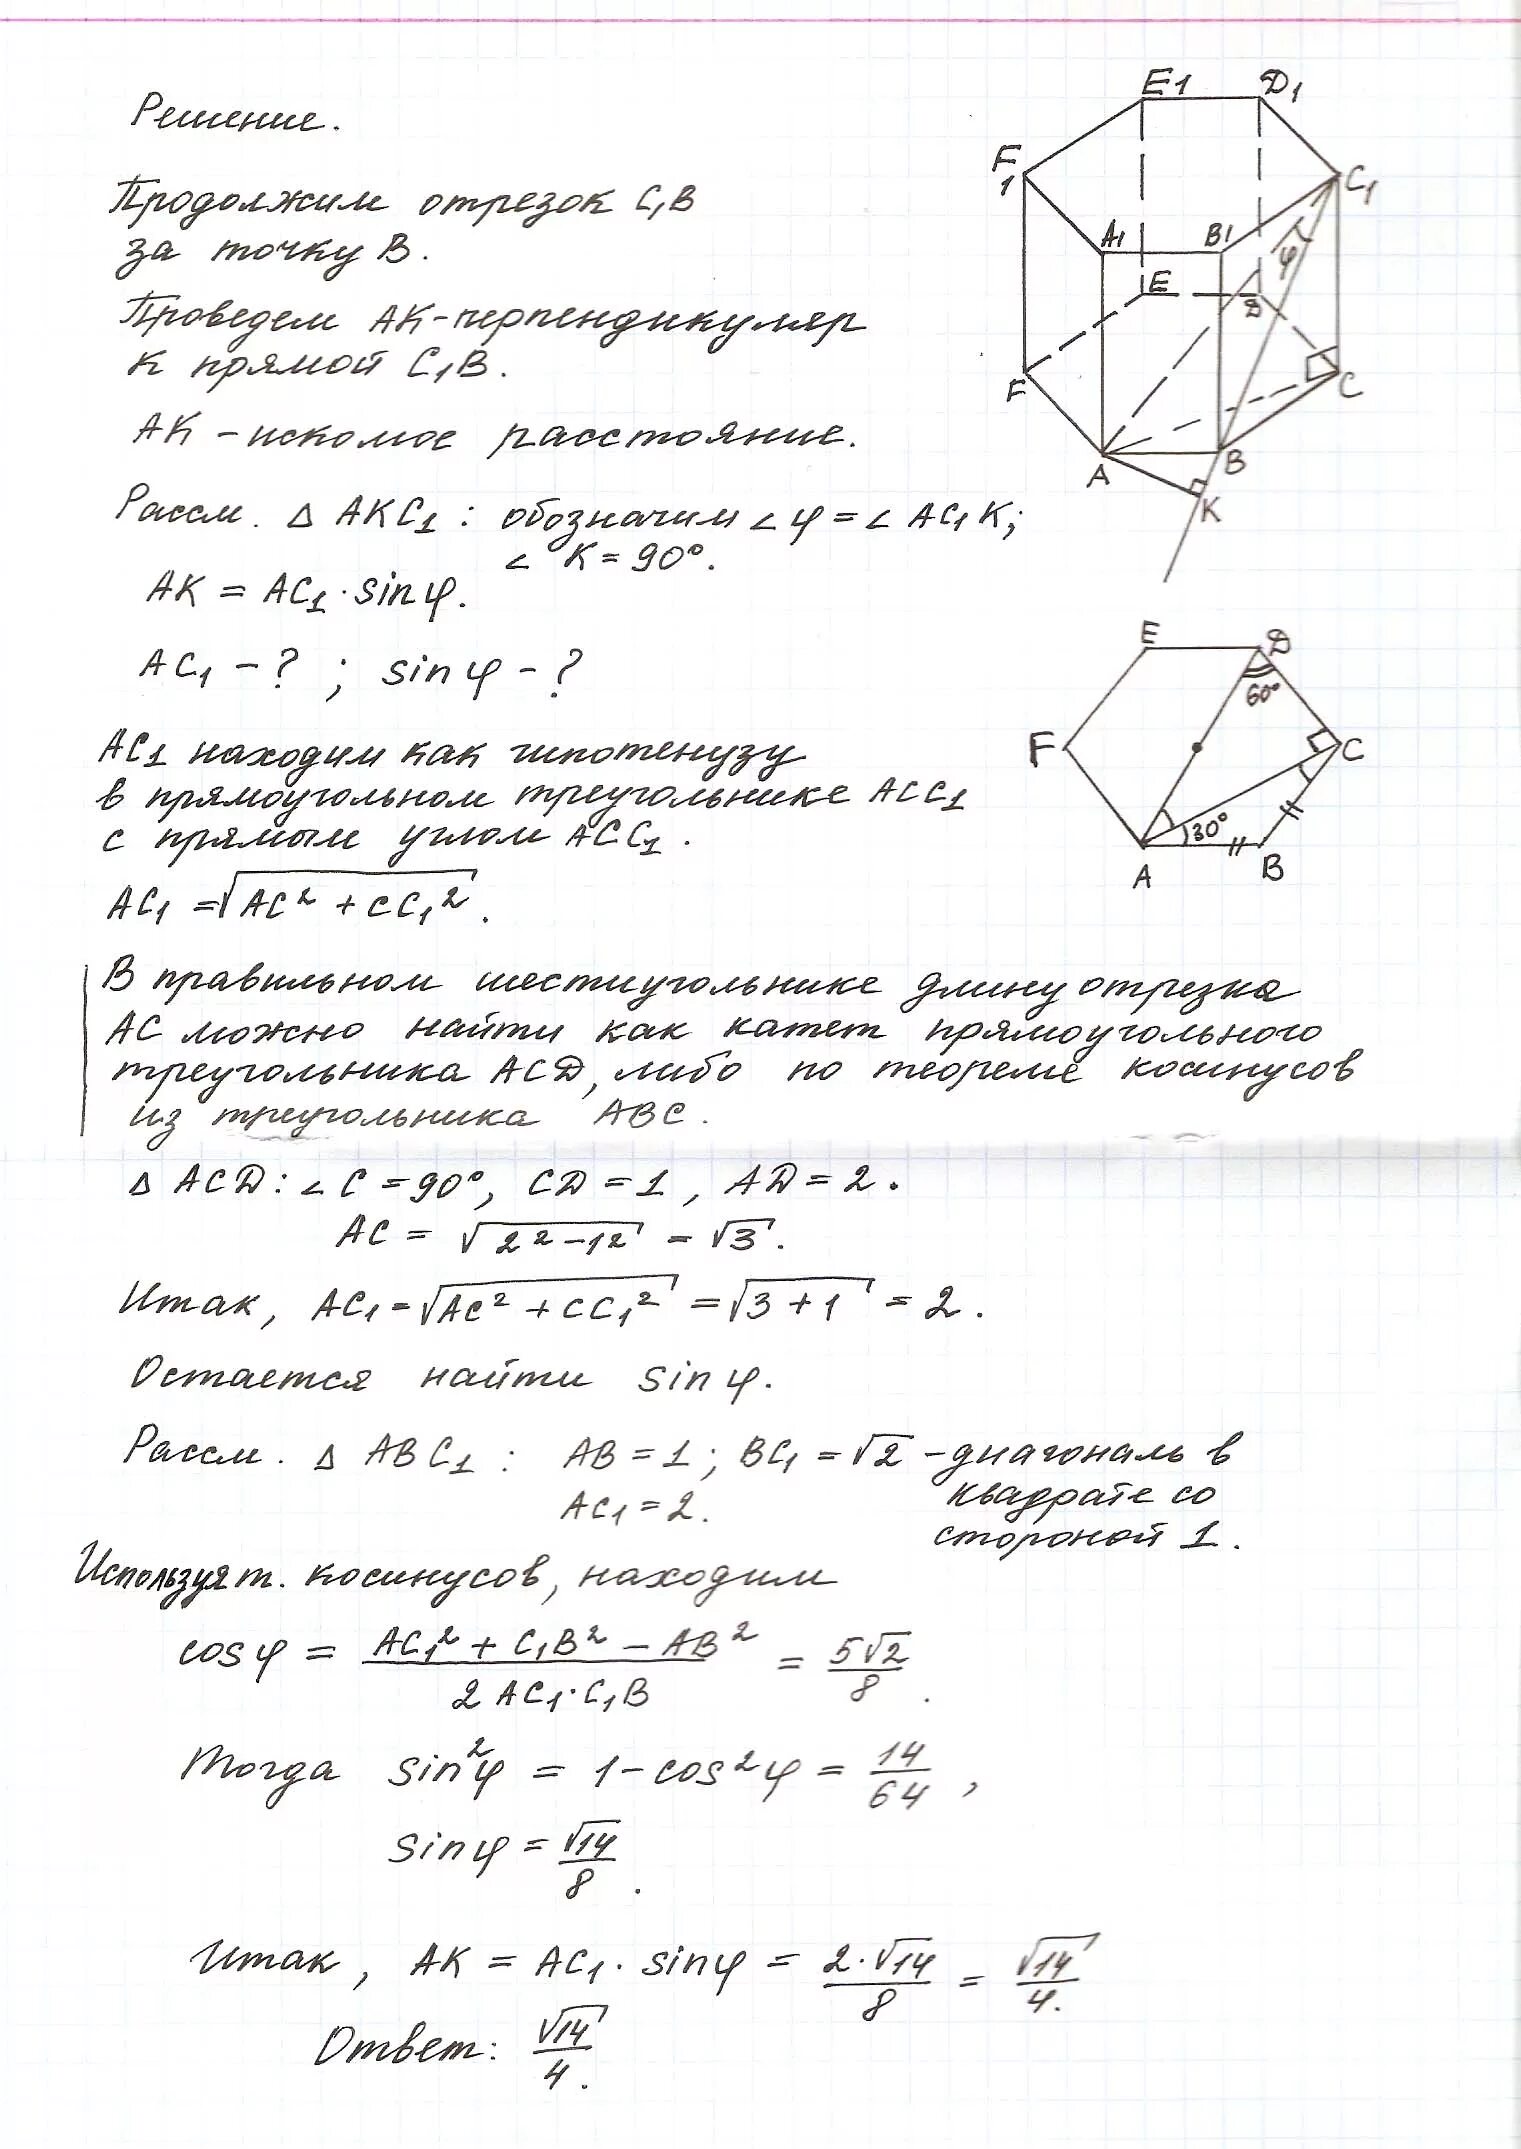 Решение.
Продолжим отрезок C₁B
за точку B.
Проведем AK-перпендикуляр
к прямой C₁B.
AK – искомое расстояние.
Рассм. Δ AKC₁ : обозначим ∠ φ = ∠ AC₁K;
∠ K = 90°.
AK = AC₁ · sin φ.
AC₁ – ? ; sin φ – ?
AC₁ находим как гипотенузу
в прямоугольном треугольнике ACC₁
с прямым углом ACC₁.
AC₁ = √(AC² + CC₁²).
В правильном шестиугольнике длину отрезка
AC можно найти как катет прямоугольного
треугольника ACD, либо по теореме косинусов
из треугольника ABC.
Δ ACD: ∠ C = 90°, CD = 1, AD = 2.
AC = √(2² – 1²) = √3.
Итак, AC₁ = √(AC² + CC₁²) = √(3 + 1) = 2.
Остается найти sin φ.
Рассм. Δ ABC₁ : AB = 1; BC₁ = √2 – диагональ в
квадрате со
стороной 1.
AC₁ = 2.
Используя т. косинусов, находим
cos φ = (AC₁² + C₁B² – AB²) / (2 AC₁ · C₁B) = 5√2 / 8.
Тогда sin² φ = 1 – cos² φ = 14/64,
sin φ = √14 / 8.
Итак, AK = AC₁ · sin φ = 2 · √14 / 8 = √14 / 4.
Ответ: √14 / 4.
E1 D1
F1 C1
A1 B1
φ
E D
F C
A B
K
E D
60°
F C
30°
A B